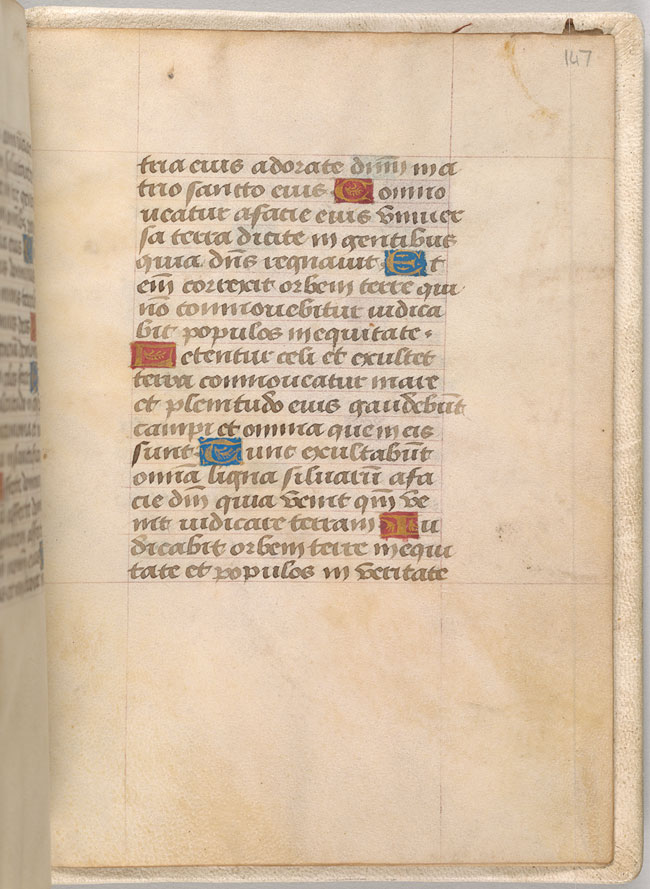 147
tria eius adorate dnm in a
trio sancto eius Commo
ueatur a facie eius vniuer
sa terra dicite in gentibus
quia dns regnauit Et
em correxit orbem terre qui
nō commouebitur iudica
bit populos in equitate
Letentur celi et exultet
terra commoueatur mare
et plenitudo eius gaudebūt
campi et omnia que in eis
sunt Tunc exultabūt
omīa ligna siluarū a fa
cie dm̄ quia venit qm̄ ve
nit iudicare terram Iu
dicabit orbem terre in equi
tate et populos in veritate